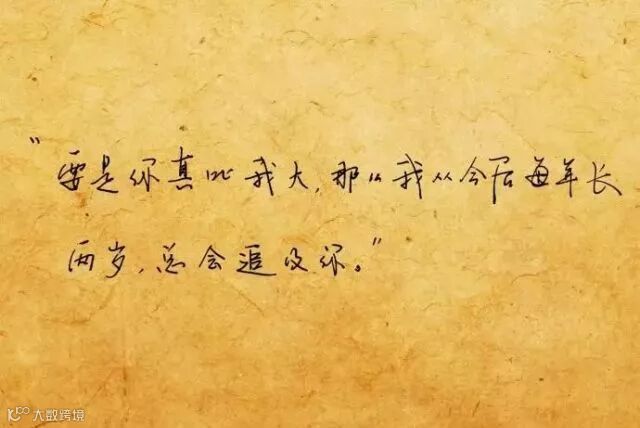 "要是你真比我大,那么我从今后每年长
两岁,总会追及你。"
大数跨境